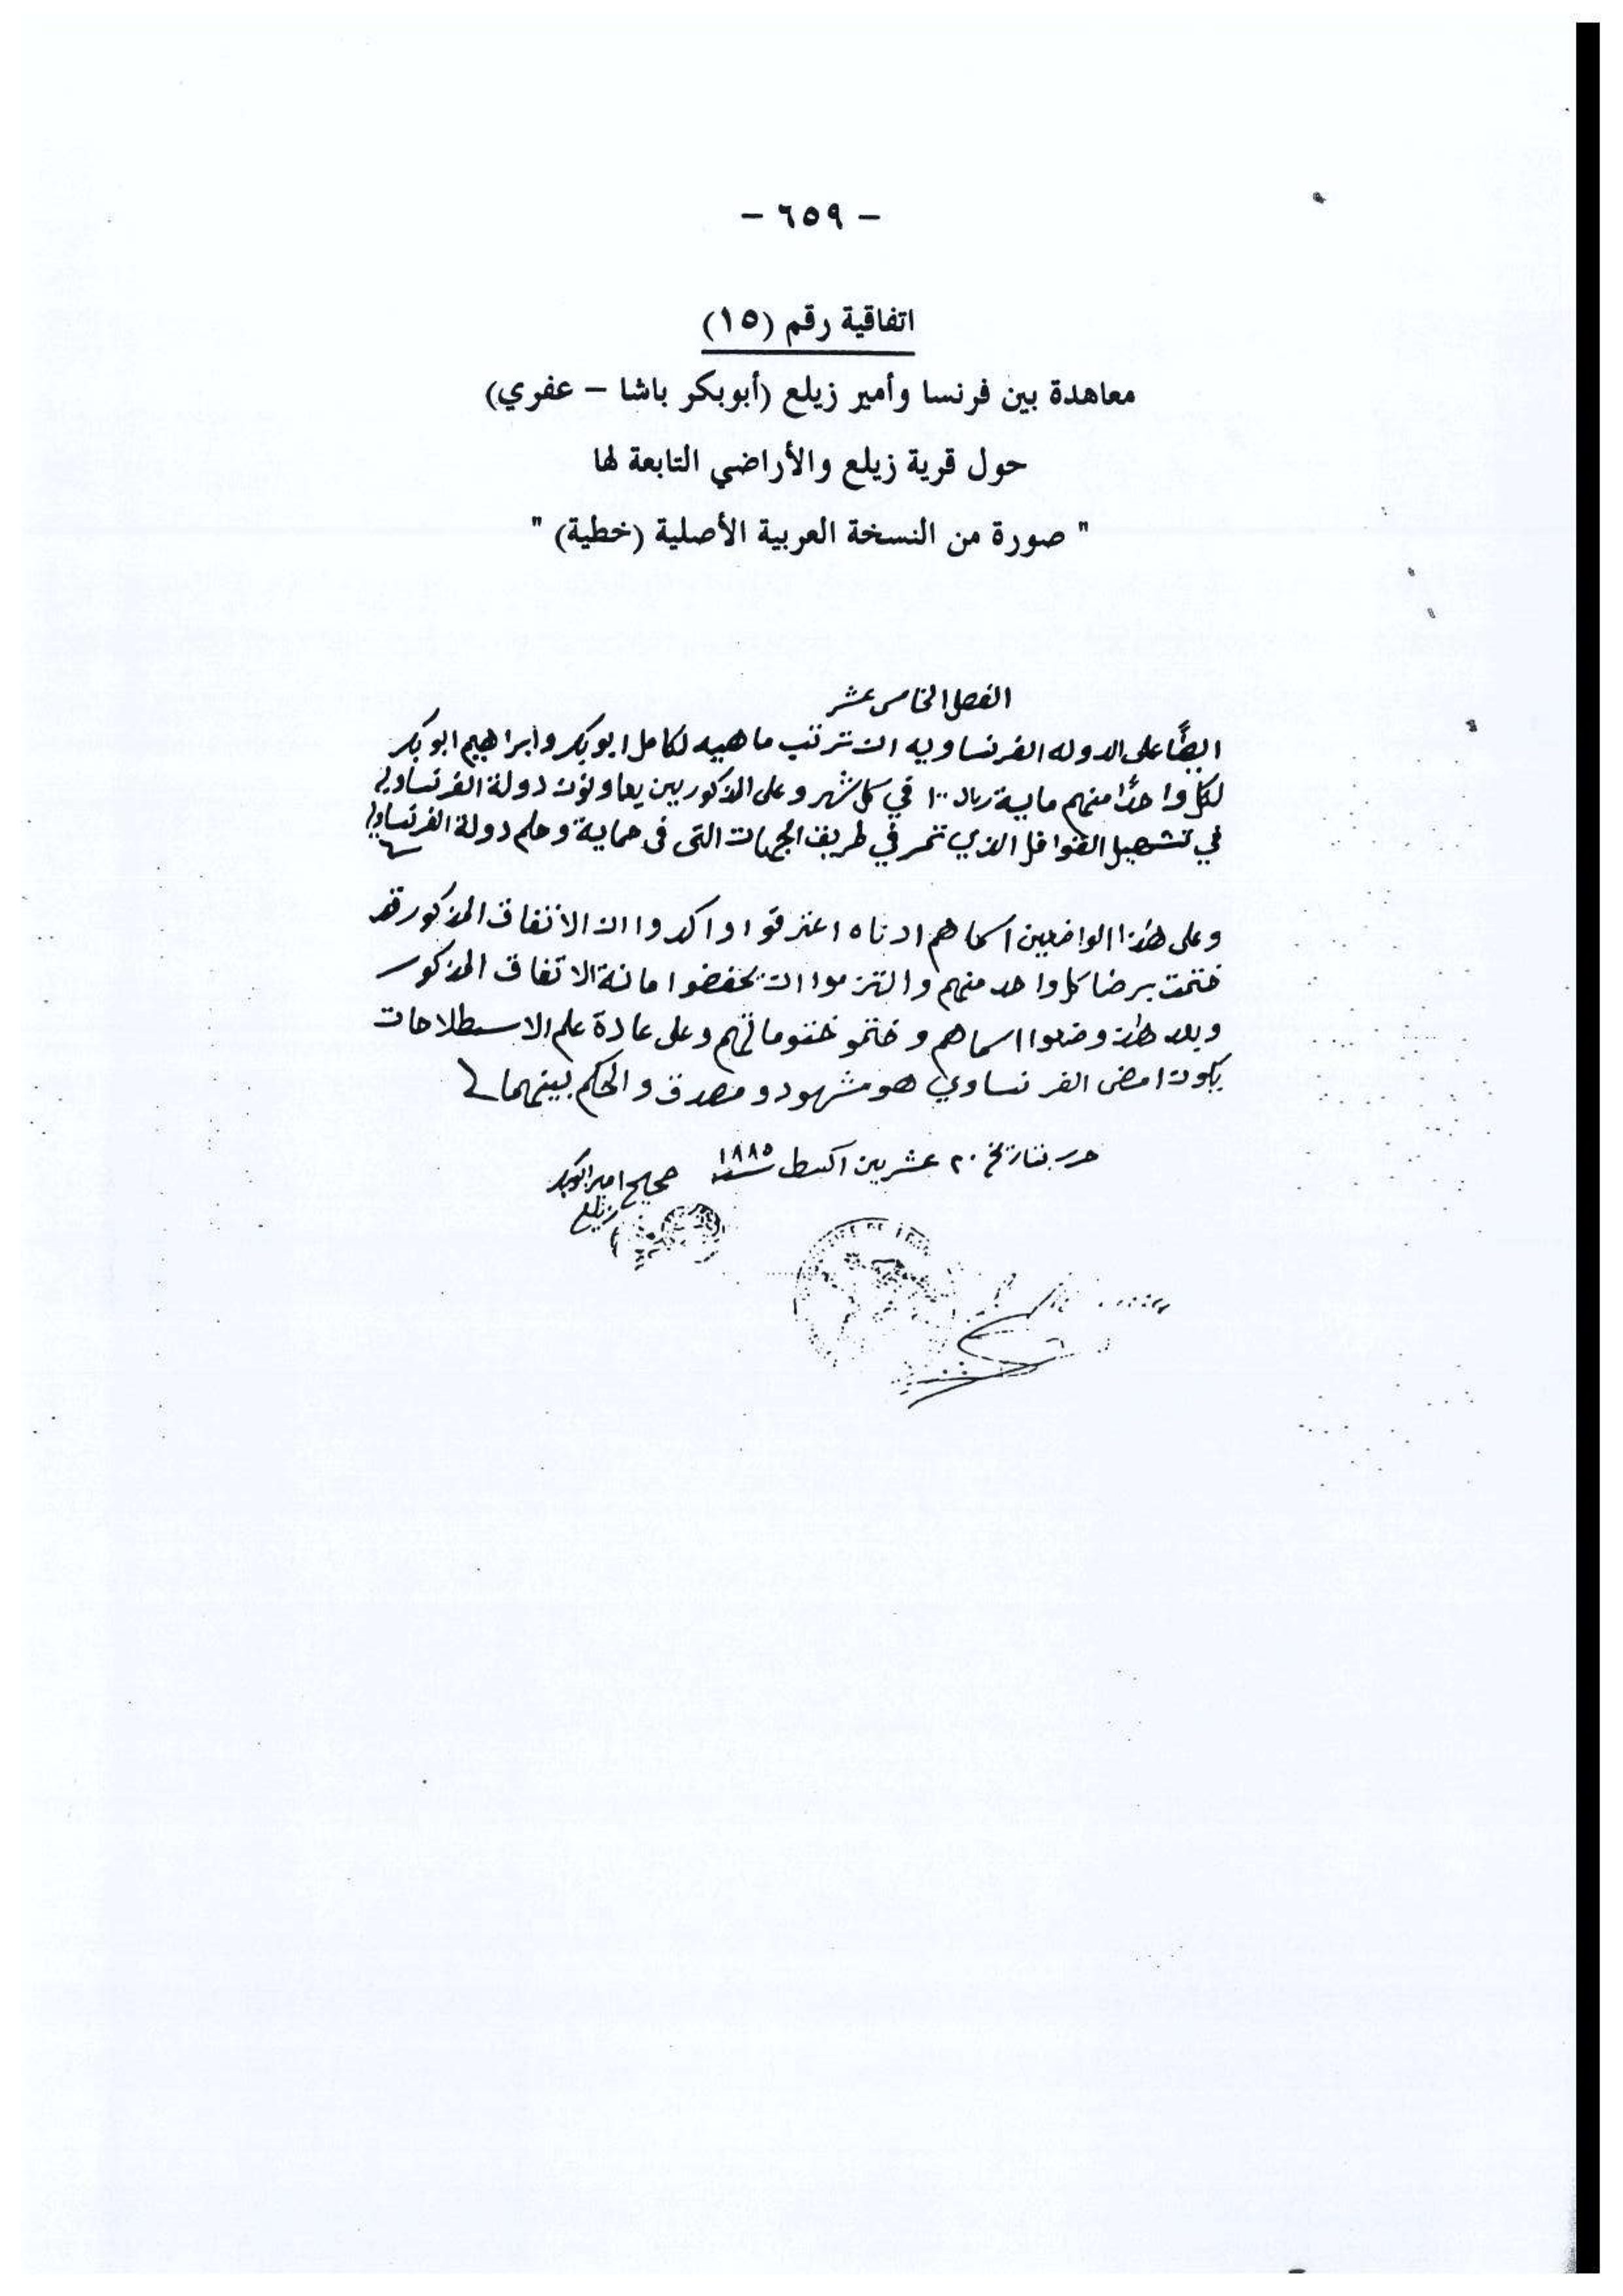 - ٦٥٩ -
اتفاقية رقم (١٥)
معاهدة بين فرنسا وأمير زيلع (أبوبكر باشا - عفري)
حول قرية زيلع والأراضي التابعة لها
" صورة من النسخة العربية الأصلية (خطية) "
الفصل الخامس عشر
ايضًا على الدوله الفرنساويه ان ترتب ماهيه لكامل ابوبكر وابراهيم ابوبكر
لكل واحدًا منهم ماية ريال ١٠٠ في كل شهر وعلى المذكورين يعاونون دولة الفرنساوي
في تسهيل القوافل الذي تمر في طريق الجهات التى فى حماية وحكم دولة الفرنساوي
وعلى هذا الواضعين اسماهم ادناه اعترفوا واكدوا ان الاتفاق المذكور قد
ختمت برضا كل واحد منهم والتزموا ان يحفضوا امانة الاتفاق المذكور
وبعد هذا وضعوا اسماهم و ختمو ختوماتهم وعلى عادة علم الاسطلاحات
يكون امضى الفرنساوي هو مشهود و مصدق والحكم بينهما
حرر بتاريخ ٢٠ عشرين اكسط سنة ١٨٨٥
صحيح امير ابوبكر
زيلع